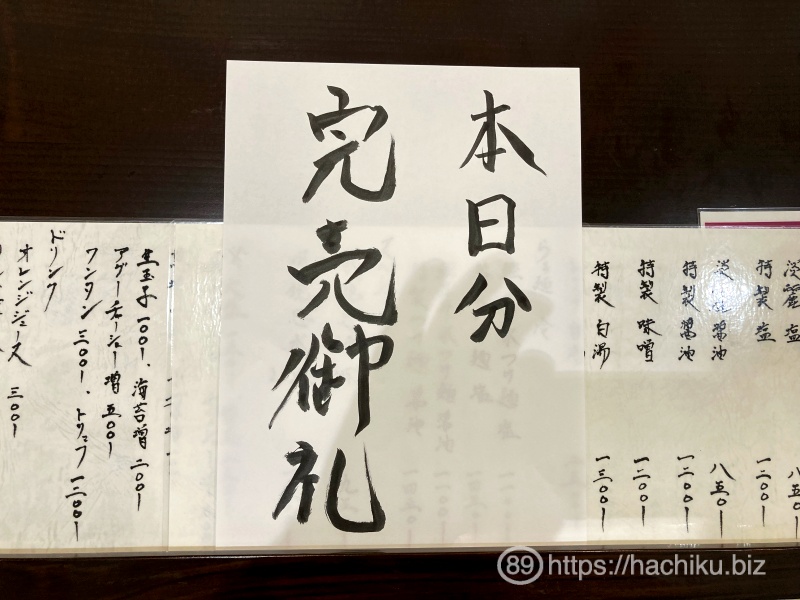 本日分
完売御礼
淡麗 塩 八五〇
特製 塩 一二〇〇
淡麗 醤油 八五〇
特製 醤油 一二〇〇
特製 味噌 一二〇〇
特製 白湯 一三〇〇
生玉子 一〇〇、海苔増 二〇〇
アグーチャーシュー増 五〇〇
ワンタン 三〇〇、トリュフ 一二〇〇
ドリンク
オレンジジュース 三〇〇
89 https://hachiku.biz